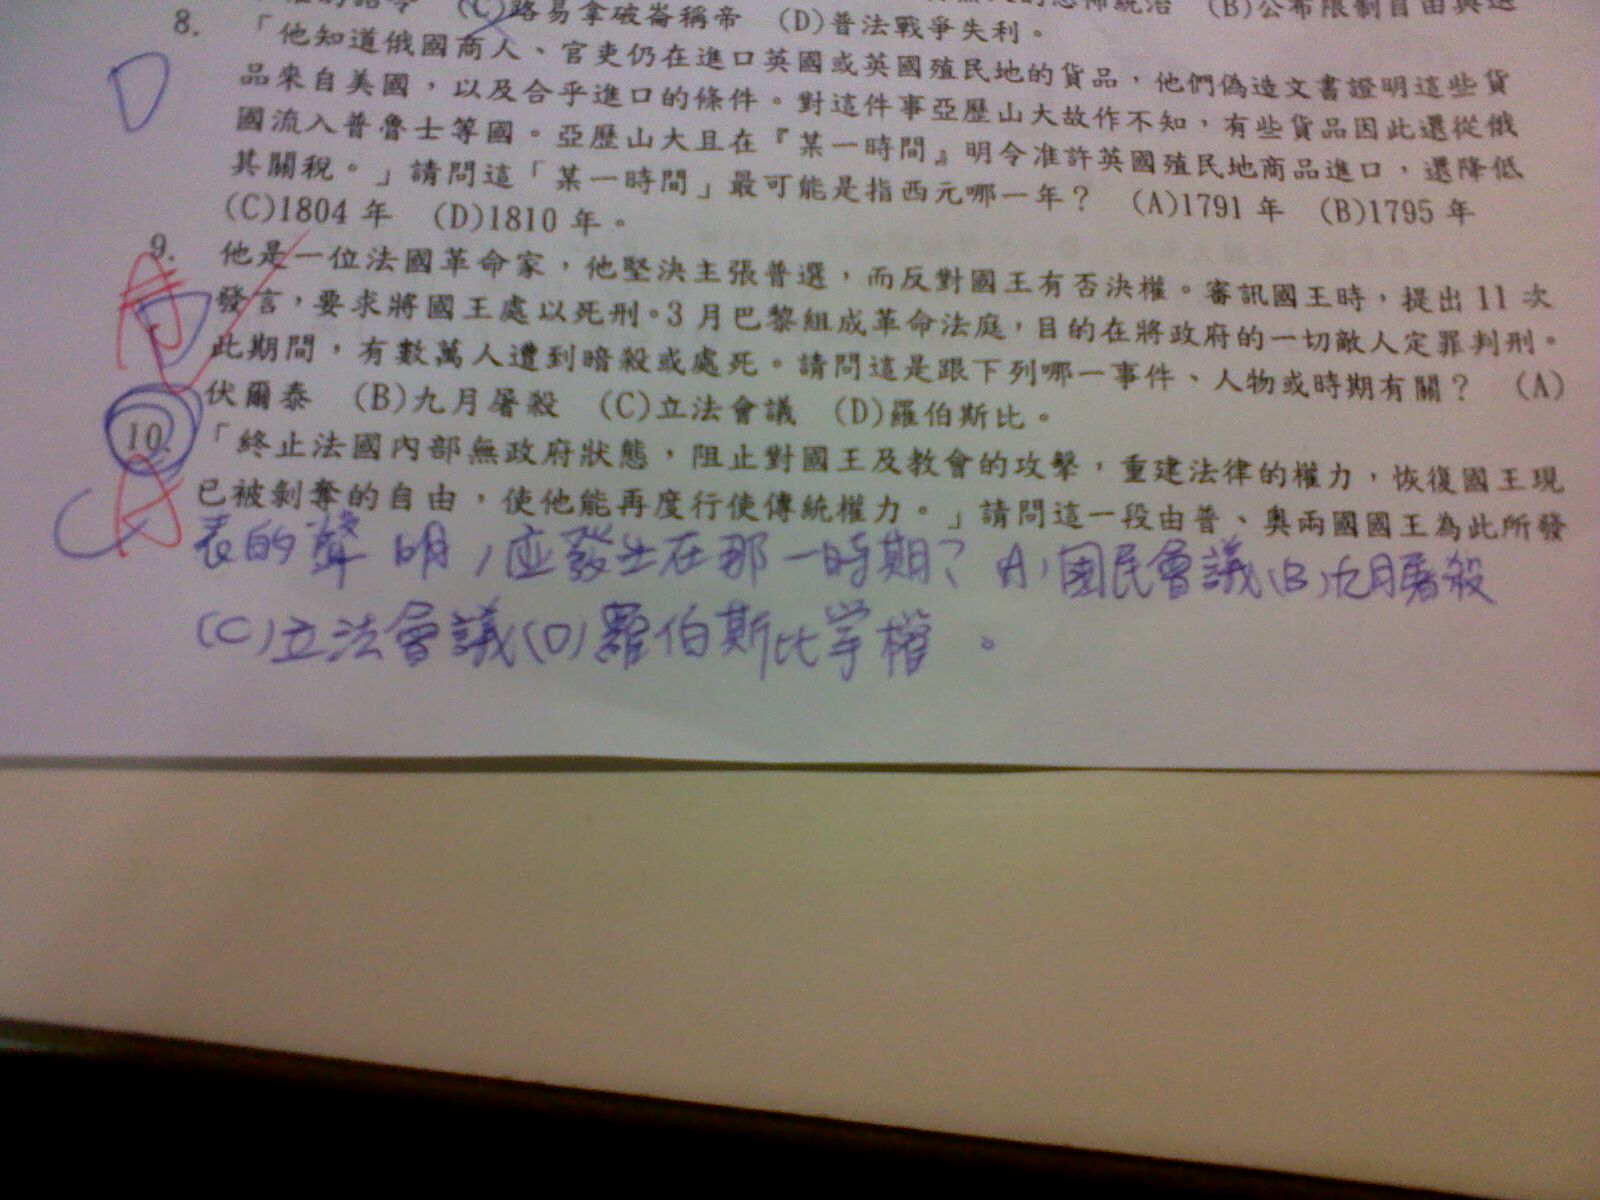 (C)路易拿破崙稱帝　(D)普法戰爭失利。
(B)公布限制自由與選
8.「他知道俄國商人、官吏仍在進口英國或英國殖民地的貨品，他們偽造文書證明這些貨
D
品來自美國，以及合乎進口的條件。對這件事亞歷山大故作不知，有些貨品因此還從俄
國流入普魯士等國。亞歷山大且在『某一時間』明令准許英國殖民地商品進口，還降低
其關稅。」請問這「某一時間」最可能是指西元哪一年？　(A)1791 年　(B)1795 年
(C)1804 年　(D)1810 年。
9.他是一位法國革命家，他堅決主張普選，而反對國王有否決權。審訊國王時，提出 11 次
發言，要求將國王處以死刑。3 月巴黎組成革命法庭，目的在將政府的一切敵人定罪判刑。
此期間，有數萬人遭到暗殺或處死。請問這是跟下列哪一事件、人物或時期有關？　(A)
伏爾泰　(B)九月屠殺　(C)立法會議　(D)羅伯斯比。
10.「終止法國內部無政府狀態，阻止對國王及教會的攻擊，重建法律的權力，恢復國王現
已被剝奪的自由，使他能再度行使傳統權力。」請問這一段由普、奧兩國國王為此所發
表的聲明，應發生在那一時期？A)國民會議(B)九月屠殺
(C)立法會議(D)羅伯斯比掌權。